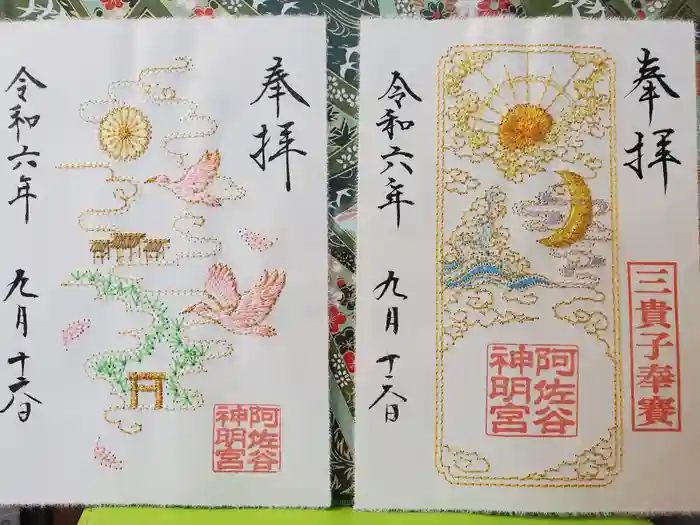 奉拝
阿佐谷
神明宮
令和六年 九月 十六日
奉拝
三貴子奉賽
阿佐谷
神明宮
令和六年 九月 十六日